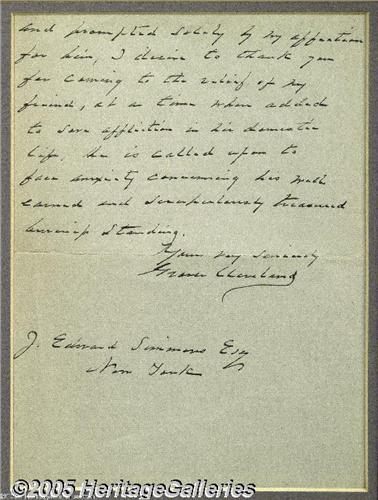 and prompted solely by my affection
for him, I desire to thank you
for coming to the relief of my
friend, at a time when added
to sore affliction in his domestic
life, he is called upon to
face anxiety concerning his well
earned and scrupulously treasured
business standing.
Yours very sincerely
Grover Cleveland
J. Edward Simmons Esq
New York
©2005 HeritageGalleries